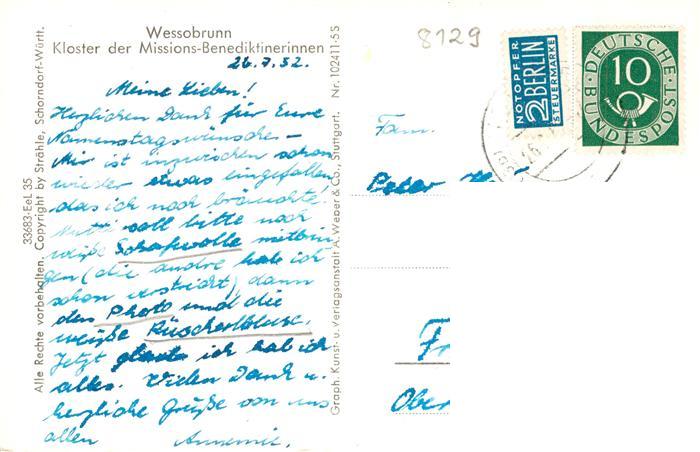 Wessobrunn
Kloster der Missions-Benediktinerinnen
26.7.52.
Meine Lieben!
Herzlichen Dank für Eure
Namenstagswünsche –
Mir ist inzwischen schon
wieder etwas eingefallen,
das ich noch bräuchte!
Mutti soll bitte noch
weiße Schafwolle mitbrin
gen (die andre hab ich
schon verstrickt) dann
den Photo und die
weiße Rüscherlbluse.
Jetzt glaub ich hab ich
alles. Vielen Dank u.
herzliche Grüße von uns
allen Annemie.
33683-EeL 35
Alle Rechte vorbehalten. Copyright by Strähle, Schorndorf-Württ.
Graph. Kunst- u. Verlagsanstalt A. Weber & Co., Stuttgart. Nr. 102411-5 S
8129
NOTOPFER
2 BERLIN
STEUERMARKE
DEUTSCHE
10
BUNDESPOST
26
Fam.
Peter
Fr
Ober